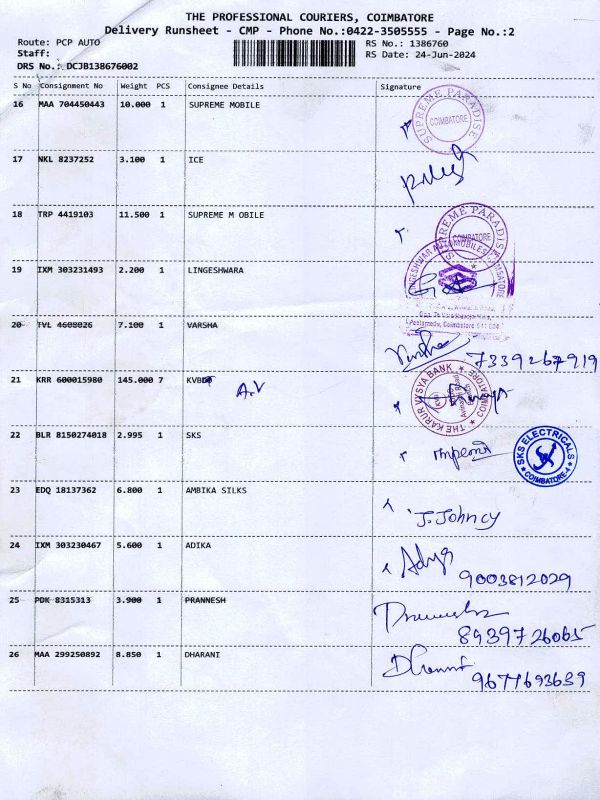 THE PROFESSIONAL COURIERS, COIMBATORE
Delivery Runsheet - CMP - Phone No.:0422-3505555 - Page No.:2
Route: PCP AUTO RS No.: 1386760
Staff: RS Date: 24-Jun-2024
DRS No.: DCJB138676002
S No Consignment No Weight PCS Consignee Details Signature
16 MAA 704450443 10.000 1 SUPREME MOBILE SUPREME PARADISE COIMBATORE
17 NKL 8237252 3.100 1 ICE
18 TRP 4419103 11.500 1 SUPREME M OBILE SUPREME PARADISE COIMBATORE
19 IXM 303231493 2.200 1 LINGESHWARA LINGESHWAR AUTOMOBILES COIMBATORE
Peelamedu, Coimbatore 641 004
20 TVL 4608026 7.100 1 VARSHA Varsha 7339267919
21 KRR 600015980 145.000 7 KVB A.V THE KARUR VYSYA BANK COIMBATORE
22 BLR 8150274018 2.995 1 SKS SKS ELECTRICALS COIMBATORE-4
23 EDQ 18137362 6.800 1 AMBIKA SILKS J. Johncy
24 IXM 303230467 5.600 1 ADIKA 9003812029
25 PDK 8315313 3.900 1 PRANNESH 8939726065
26 MAA 299250892 8.850 1 DHARANI 9677693639